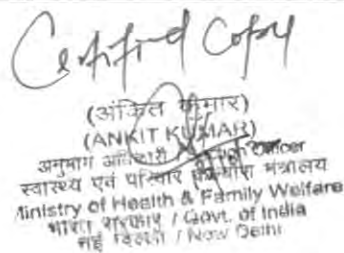 Certified Copy
(अंकित कुमार)
(ANKIT KUMAR)
अनुभाग अधिकारी / Officer
स्वास्थ्य एवं परिवार कल्याण मंत्रालय
Ministry of Health & Family Welfare
भारत सरकार / Govt. of India
नई दिल्ली / New Delhi